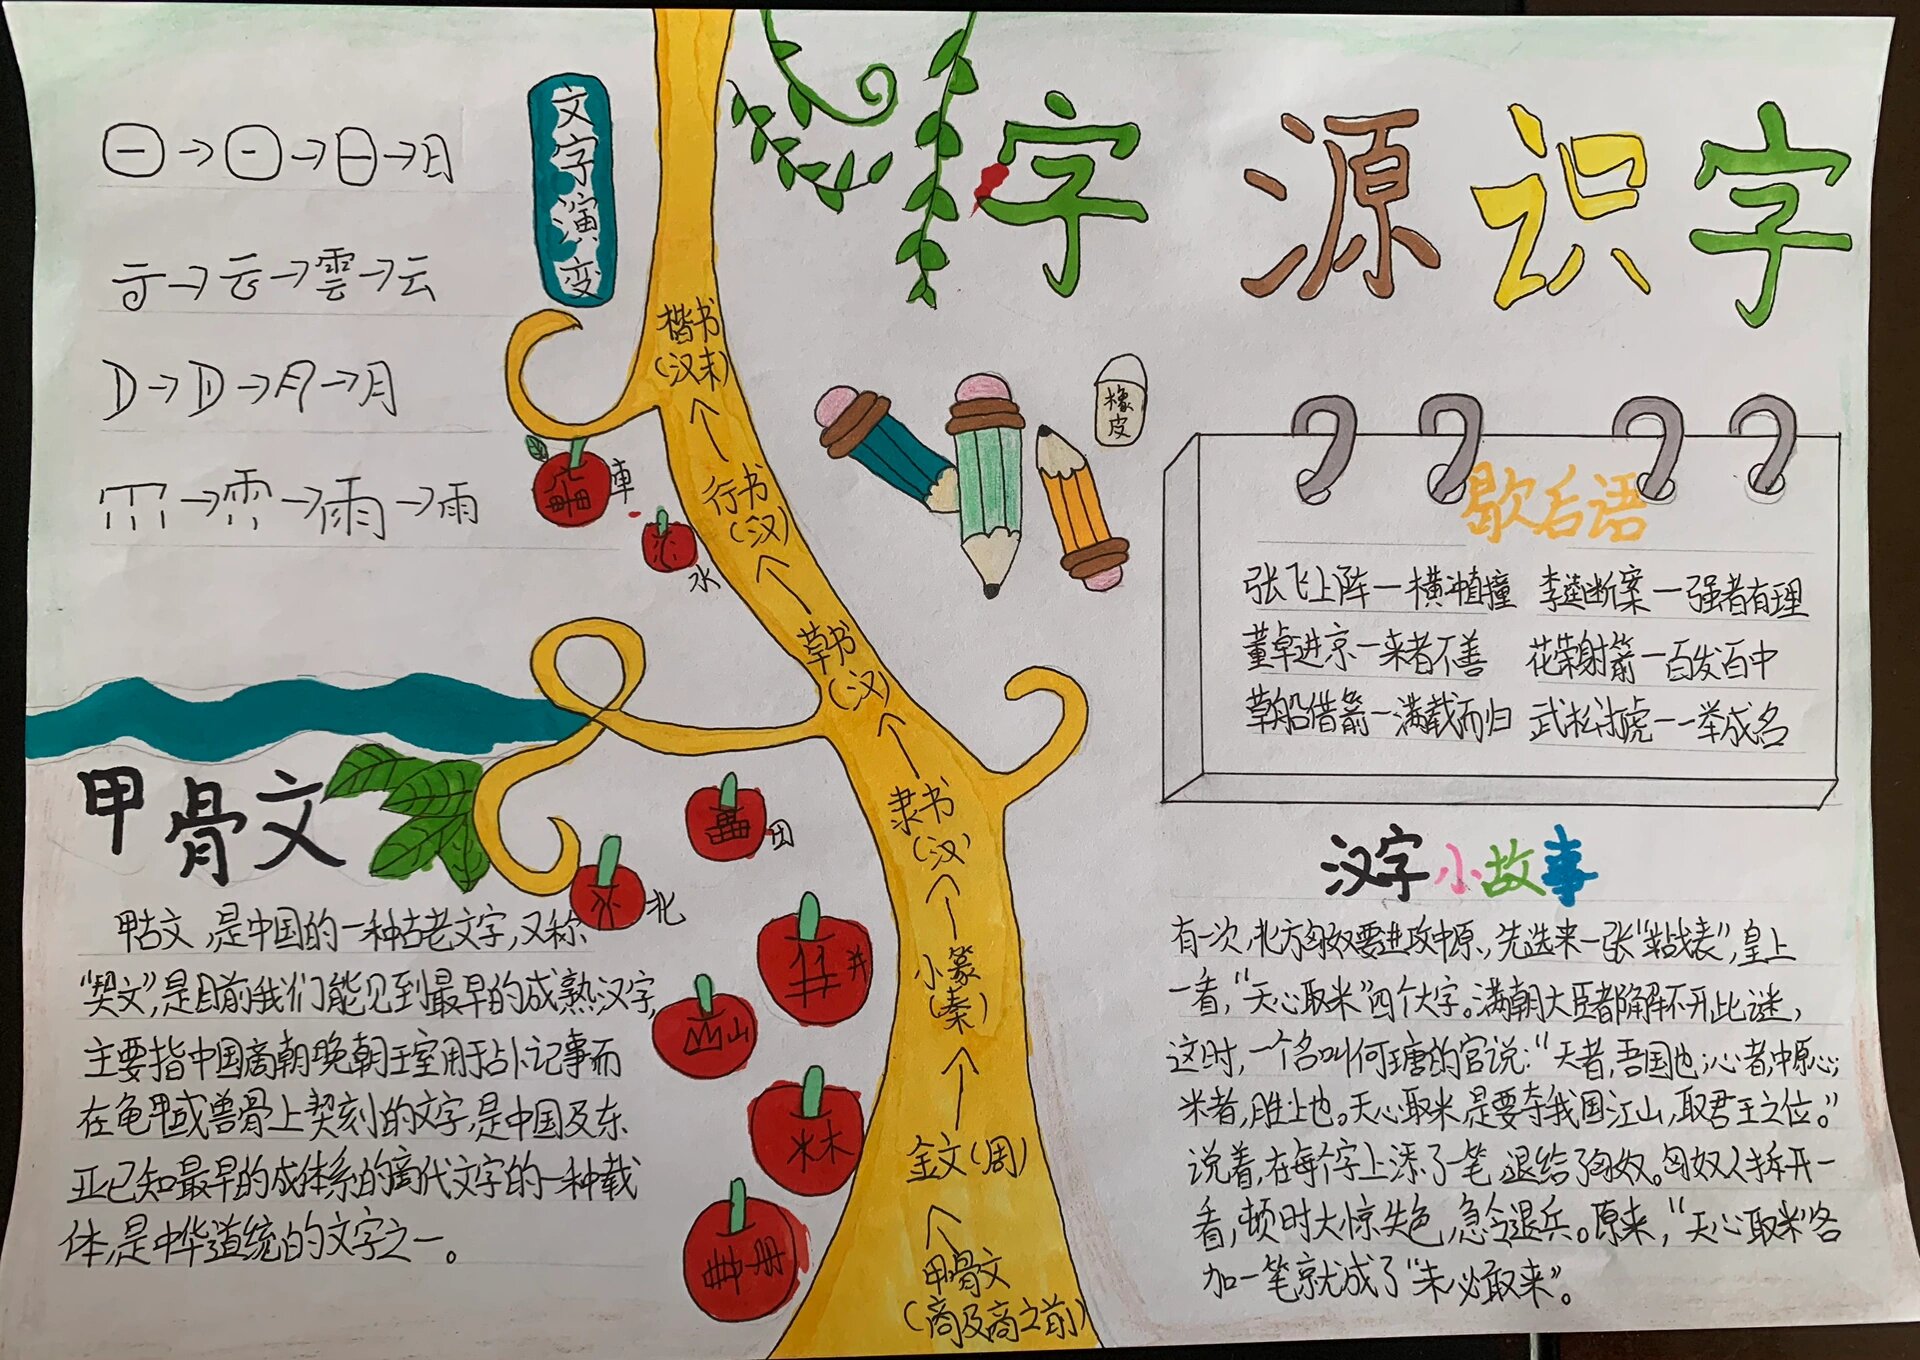 字源识字
文字演变
日
云→雲→云
月
雨→雨
楷书
(汉末)
行书
(汉)
草书
(汉)
隶书
(汉)
小篆
(秦)
金文(周)
甲骨文
(商及商之前)
車
水
田
北
井
山
林
册
橡皮
歇后语
张飞上阵一横冲直撞 李逵断案一强者有理
董卓进京一来者不善 花荣射箭一百发百中
草船借箭一满载而归 武松打虎一一举成名
甲骨文
甲古文,是中国的一种古老文字,又称
“契文”,是目前我们能见到最早的成熟汉字,
主要指中国商朝晚朝王室用于占卜记事而
在龟甲或兽骨上契刻的文字,是中国及东
亚已知最早的成体系的商代文字的一种载
体,是中华道统的文字之一。
汉字小故事
有一次,北方匈奴要进攻中原,先送来一张“战表”,皇上
一看,“天心取米”四个大字。满朝大臣都解不开此谜,
这时,一个名叫何瑭的官说:“天者,吾国也;心者,中原心;
米者,胜上也。天心取米,是要夺我国江山,取君王之位。”
说着,在每个字上添了一笔,退给了匈奴。匈奴人拆开一
看,顿时大惊失色,急令退兵。原来,“天心取米”各
加一笔就成了“未必敢来”。